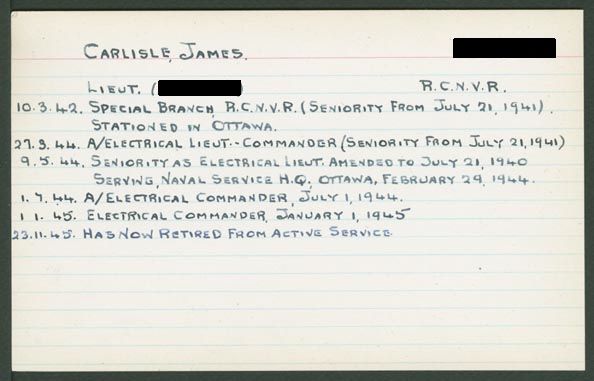 CARLISLE, JAMES.
LIEUT. ( ) R.C.N.V.R.
10.3.42. SPECIAL BRANCH, R.C.N.V.R. (SENIORITY FROM JULY 21, 1941).
STATIONED IN OTTAWA.
27.3.44. A/ELECTRICAL LIEUT.-COMMANDER (SENIORITY FROM JULY 21, 1941)
9.5.44. SENIORITY AS ELECTRICAL LIEUT. AMENDED TO JULY 21, 1940
SERVING, NAVAL SERVICE H.Q., OTTAWA, FEBRUARY 29, 1944.
1.7.44. A/ELECTRICAL COMMANDER, JULY 1, 1944.
1 1.45. ELECTRICAL COMMANDER, JANUARY 1, 1945
23.11.45. HAS NOW RETIRED FROM ACTIVE SERVICE.